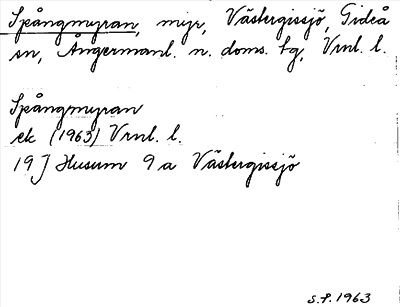 Spångmyran, myr, Västergissjö, Gideå
sn, Ångermanl. n. doms. tg, Vrnl. l.
Spångmyran
ek (1963) Vrnl. l.
19J Husum 9 a Västergissjö
S.F. 1963